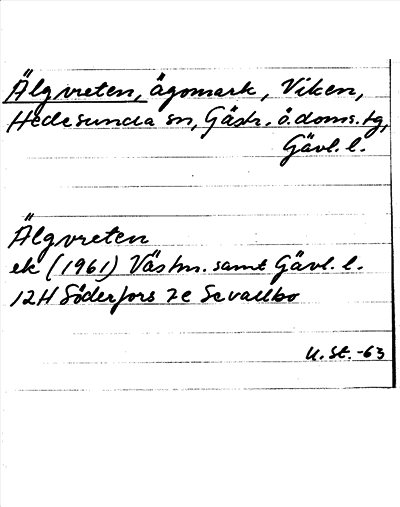 Älgvreten, ägomark, Viken,
Hedesunda sn, Gästr. ö. doms. tg,
Gävl. l.
Älgvreten
ek (1961) Västm. samt Gävl. l.
12H Söderfors 7e Sevallbo
U. St. -63